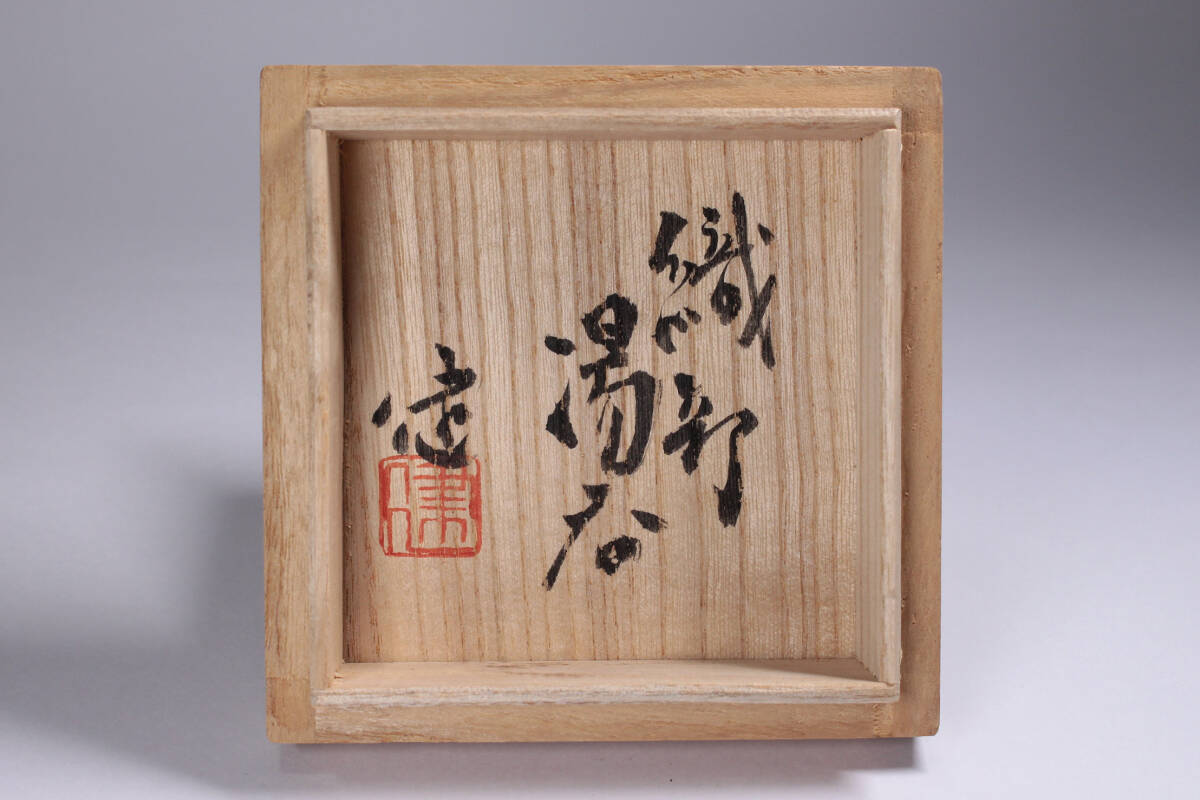 織部
湯呑
健